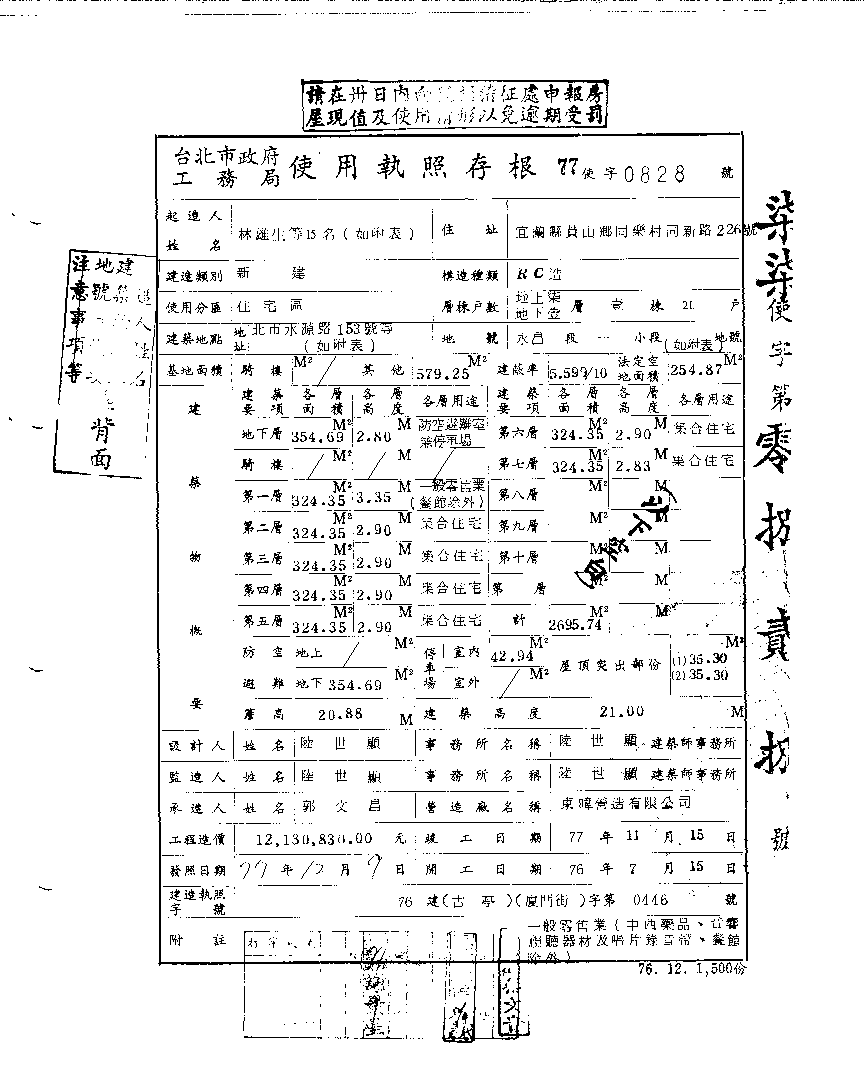 請在卅日內 征處申報房
屋現值及使用 以免逾期受罰
台北市政府
工務局 使用執照存根 77使字0828 號
起造人姓名 林雄生等15名(如附表) 住址 宜蘭縣員山鄉同樂村同新路226號
建造類別 新建 構造種類 RC造
使用分區 住宅區 層棟戶數 地上柒地下壹層壹棟 戶
建築地點 地址 北市水源路153號等(如附表) 地號 永昌段一小段 地號(如附表)
基地面積 騎樓 M² / 其他 579.25 M² 建蔽率 5.599/10 法定空地面積 254.87 M²
建築要項 各層面積 各層高度 各層用途 建築要項 各層面積 各層高度 各層用途
地下層 354.69 M² 2.80 M 防空避難室兼停車場 第六層 324.35 M² 2.90 M 集合住宅
騎樓 / M² / M / 第七層 324.35 M² 2.83 M 集合住宅
第一層 324.35 M² 3.35 M 一般零售業(餐館除外) 第八層 M² M
第二層 324.35 M² 2.90 M 集合住宅 第九層 M² M
第三層 324.35 M² 2.90 M 集合住宅 第十層 M² M
第四層 324.35 M² 2.90 M 集合住宅 第 層 M² M
第五層 324.35 M² 2.90 M 集合住宅 計 2695.74 M² M
建築物概要
(以下空白)
防空 地上 / M² 停車場 室內 42.94 M² 屋頂突出部份 (1)35.30 M²
避難 地下 354.69 M² 室外 / M² (2)35.30
簷高 20.88 M 建築高度 21.00 M
設計人 姓名 陸世顯 事務所名稱 陸世顯 建築師事務所
監造人 姓名 陸世顯 事務所名稱 陸世顯 建築師事務所
承造人 姓名 郭文昌 營造廠名稱 東暐營造有限公司
工程造價 12,130,830.00 元 竣工日期 77年11月15日
發照日期 77年12月9日 開工日期 76年7月15日
建造執照字號 76建(古亭)(廈門街)字第 0446 號
附註 一般零售業(中西藥品、音響
視聽器材及唱片錄音帶、餐館
除外)
76. 12. 1,500份
柒柒使字第零捌貳捌號
注意事項等
背面